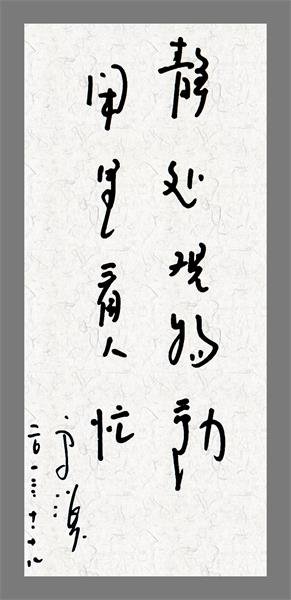 静处观物动
闲里看人忙